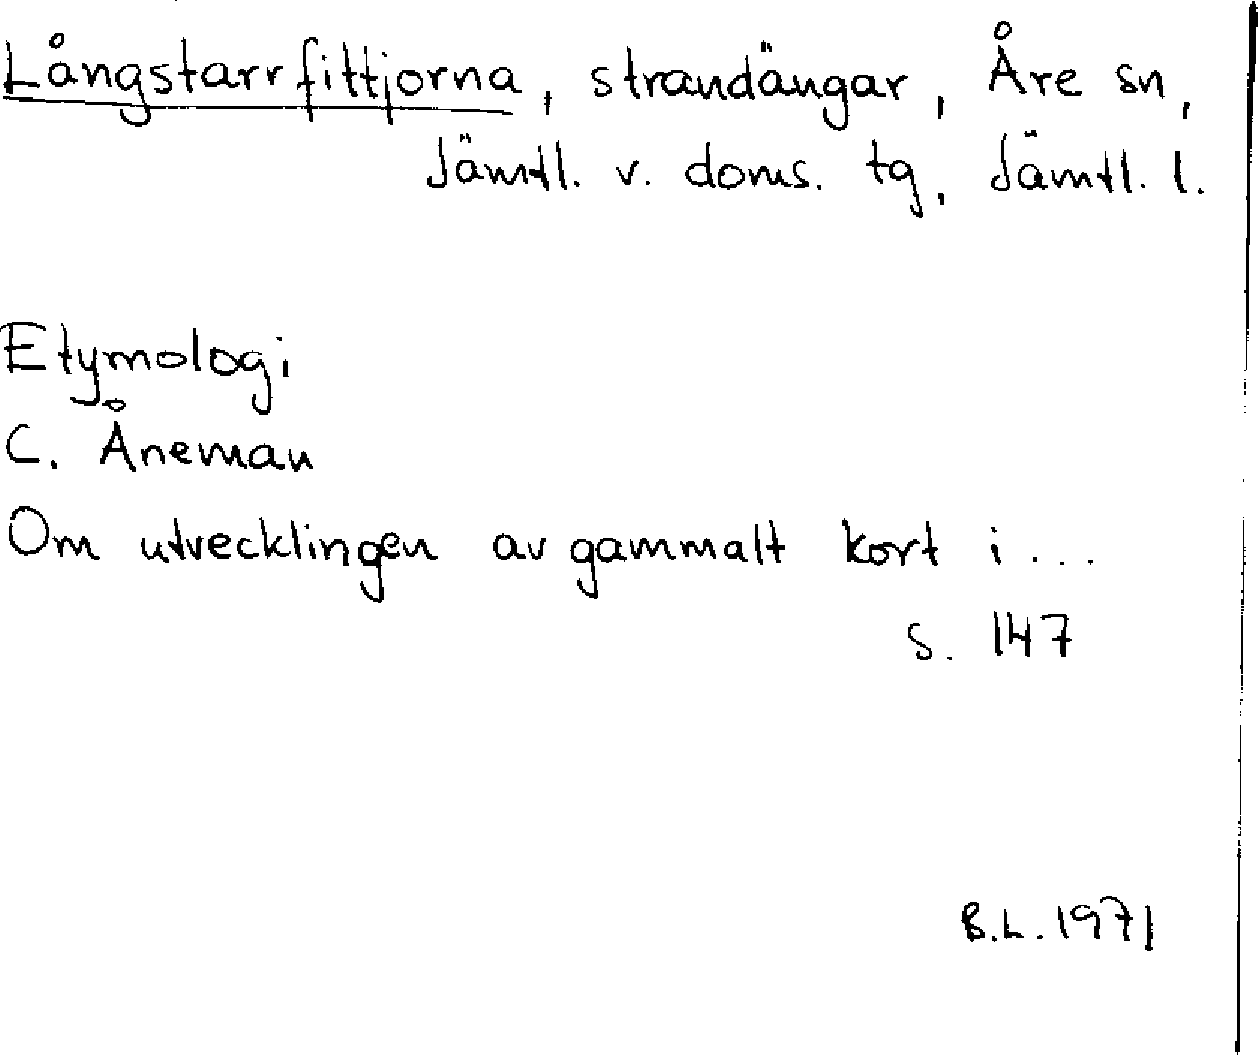 Långstarrfittjorna, strandängar, Åre sn,
Jämtl. v. doms. tg, Jämtl. l.
Etymologi
C. Åneman
Om utvecklingen av gammalt kort i...
s. 147
B.L. 1971